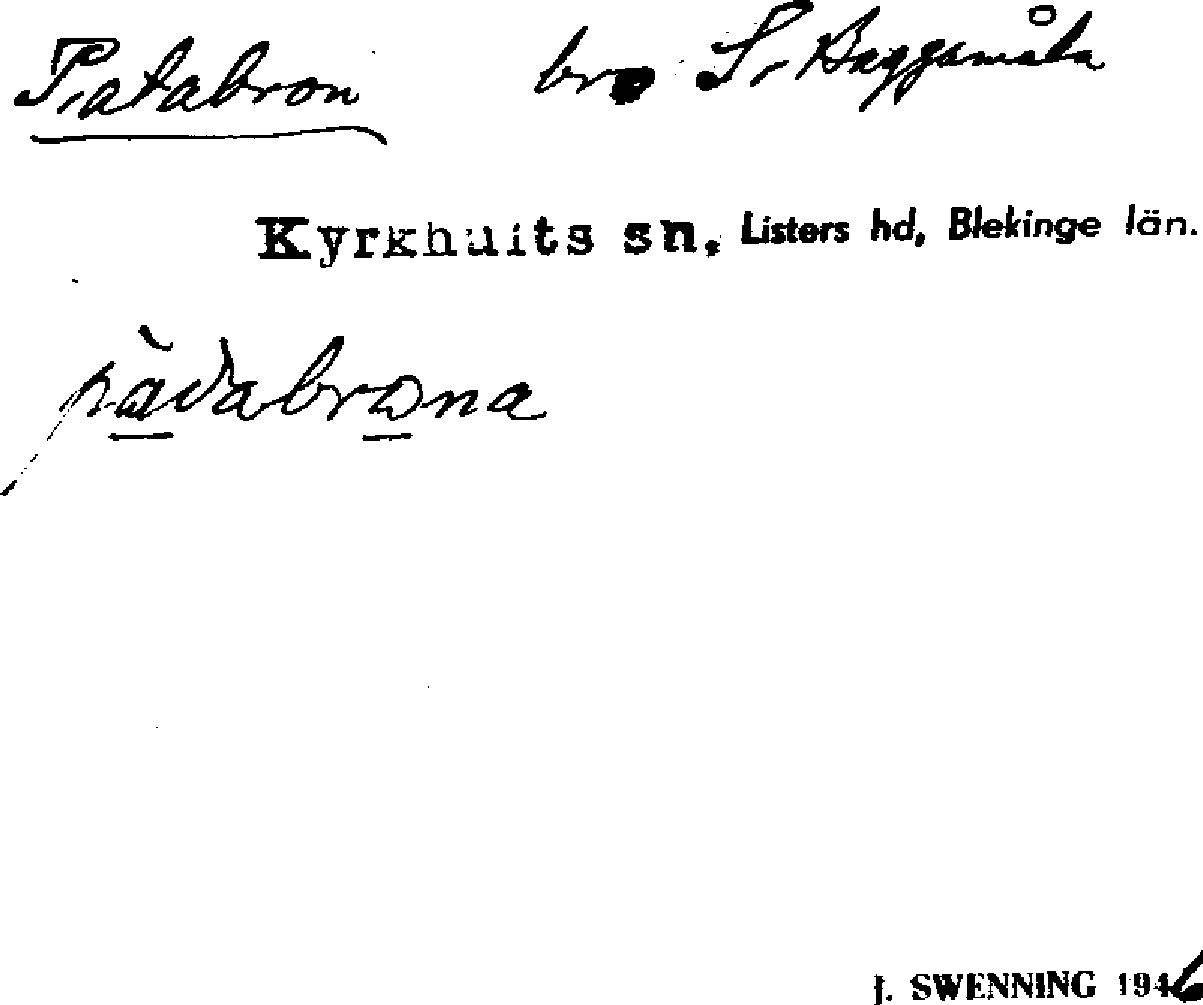 Patabron bro S. Baggamåla
Kyrkhults sn, Listers hd, Blekinge län.
pàdabrona
J. SWENNING 1946